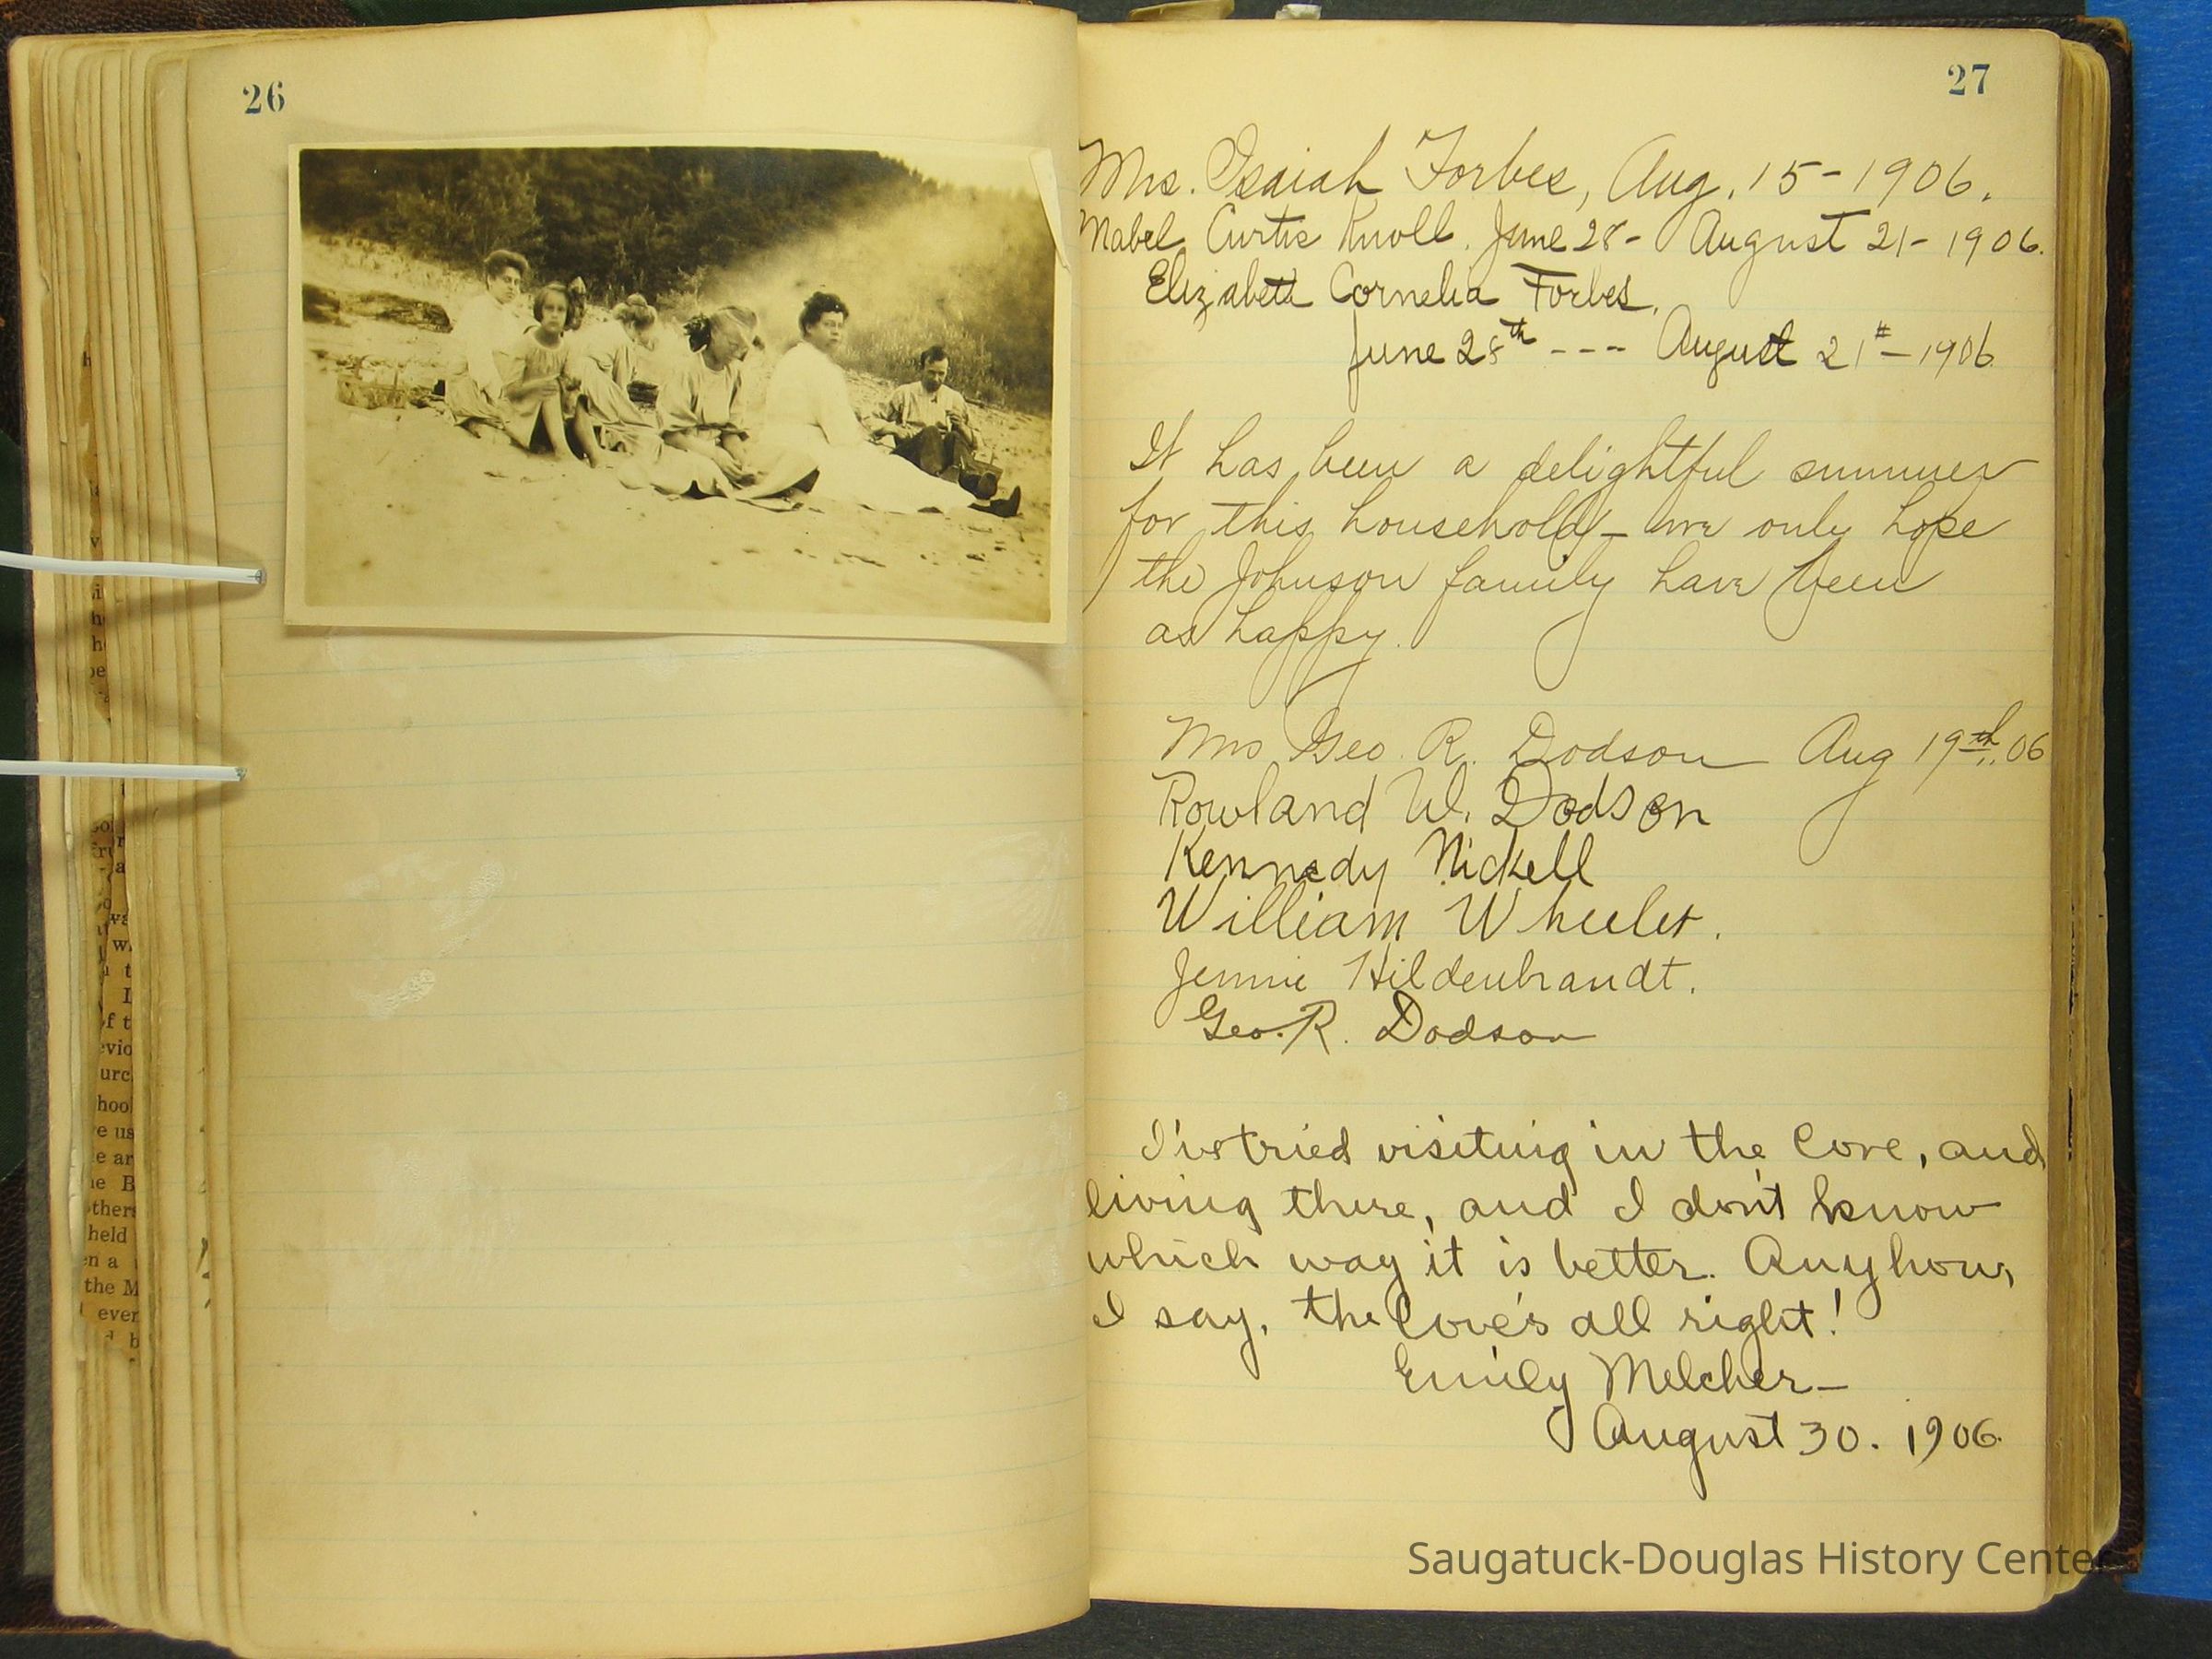 26
27
Mrs. Isaiah Forbes, Aug. 15-1906.
Mabel Curtis Knoll. June 28- August 21-1906.
Elizabeth Cornelia Forbes.
June 28th --- August 21st-1906
It has been a delightful summer
for this household - we only hope
the Johnson family have been
as happy.
Mrs Geo. R. Dodson Aug 19th, 06
Rowland W. Dodson
Kennedy Nickell
William Wheeler.
Jennie Hildenbrandt.
Geo. R. Dodson
I've tried visiting in the Cove, and
living there, and I don't know
which way it is better. Anyhow,
I say, the Cove's all right!
Emily Melcher-
August 30. 1906.
Saugatuck-Douglas History Center